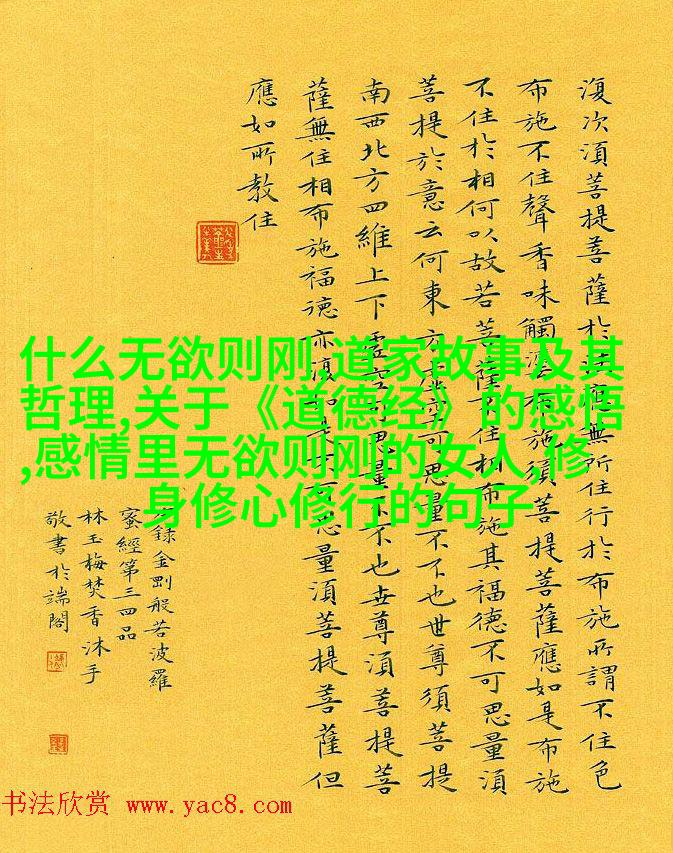 復次湏菩提菩薩於法應無所住行於布施所謂不住色
布施不住聲香味觸法布施須菩提菩薩應如是布施
不住於相何以故若菩薩不住相布施其福德不可思量湏
菩提於意云何東方虛空可思量不不也世尊須菩提
南西北方四維上下虛空可思量不不也世尊湏菩提菩
薩無住相布施福德亦復如是不可思量湏菩提菩薩但
應如所教住
錄金剛般若波羅
蜜經第三四品
林玉梅焚香沐手
敬書於端閣
什么无欲则刚,道家故事及其
哲理,关于《道德经》的感悟
,感情里无欲则刚的女人,修
身修心修行的句子
书法欣赏 www.yac8.com